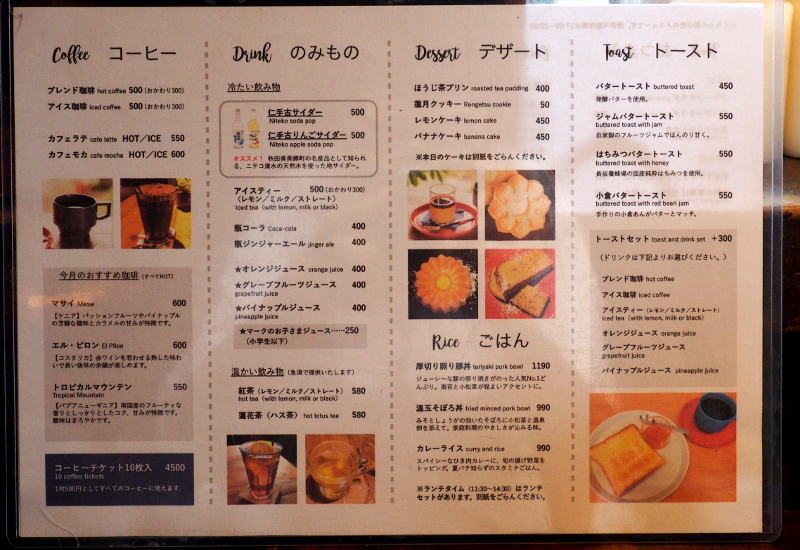 Coffee コーヒー
ブレンド珈琲 hot coffee 500 (おかわり300)
アイス珈琲 iced coffee 500 (おかわり300)
カフェラテ cafe latte HOT／ICE 550
カフェモカ cafe mocha HOT／ICE 600
今月のおすすめ珈琲 (すべてHOT)
マサイ Masai 600
【ケニア】パッションフルーツやパイナップル
の芳醇な酸味とカラメルの甘みが特徴です。
エル・ピロン El Pilon 600
【コスタリカ】赤ワインを思わせる熟した味わ
いで長い後味の余韻が楽しめます。
トロピカルマウンテン 550
Tropical Mountain
【パプアニューギニア】南国産のフルーティな
香りとしっかりとしたコク、甘みが特徴です。
酸味はまろやかです。
コーヒーチケット10枚入 4500
10 coffee tickets
1枚500円としてすべてのコーヒーに使えます。
Drink のみもの
冷たい飲み物
仁手古サイダー 500
Niteko soda pop
仁手古りんごサイダー 500
Niteko apple soda pop
オススメ！ 秋田県美郷町の名産品として知られ
る、ニテコ清水の天然水を使った地サイダー。
アイスティー 500 (おかわり300)
（レモン／ミルク／ストレート）
Iced tea (with lemon, milk or black)
瓶コーラ Coca-cola 400
瓶ジンジャーエール jinger ale 400
★オレンジジュース orange juice 400
★グレープフルーツジュース 400
grapefruit juice
★パイナップルジュース 400
pineapple juice
★マークのお子さまジュース……250
（小学生以下）
温かい飲み物 (急須で提供いたします)
紅茶（レモン／ミルク／ストレート） 580
hot tea (with lemon, milk or black)
蓮花茶（ハス茶） hot lotus tea 580
Dessert デザート
ほうじ茶プリン roasted tea pudding 400
蓮月クッキー Rengetsu cookie 50
レモンケーキ lemon cake 450
バナナケーキ banana cake 450
※本日のケーキは別紙をごらんください。
Rice ごはん
厚切り照り豚丼 teriyaki pork bowl 1190
ジューシーな豚の照り焼きがのった人気No.1ど
んぶり。海苔と小松菜が程よいアクセントに。
温玉そぼろ丼 fried minced pork bowl 990
みそとしょうがの効いたそぼろに小松菜と温泉
卵を添えて。家庭料理のやさしさが沁みる味。
カレーライス curry and rice 990
スパイシーなひき肉カレーに、旬の揚げ野菜を
トッピング。夏バテ知らずのスタミナごはん。
※ランチタイム（11:30〜14:30）はランチ
セットがあります。別紙をごらんください。
Toast トースト
バタートースト buttered toast 450
発酵バターを使用。
ジャムバタートースト 550
buttered toast with jam
自家製のフルーツジャムでほんのり甘く。
はちみつバタートースト 550
buttered toast with honey
長坂養蜂場の国産純粋はちみつを使用。
小倉バタートースト 550
buttered toast with red bean jam
手作りの小倉あんがバターとマッチ。
トーストセット toast and drink set ＋300
（ドリンクは下記よりお選びください。）
ブレンド珈琲 hot coffee
アイス珈琲 iced coffee
アイスティー（レモン／ミルク／ストレート）
iced tea (with lemon, milk or black)
オレンジジュース orange juice
グレープフルーツジュース
grapefruit juice
パイナップルジュース pineapple juice